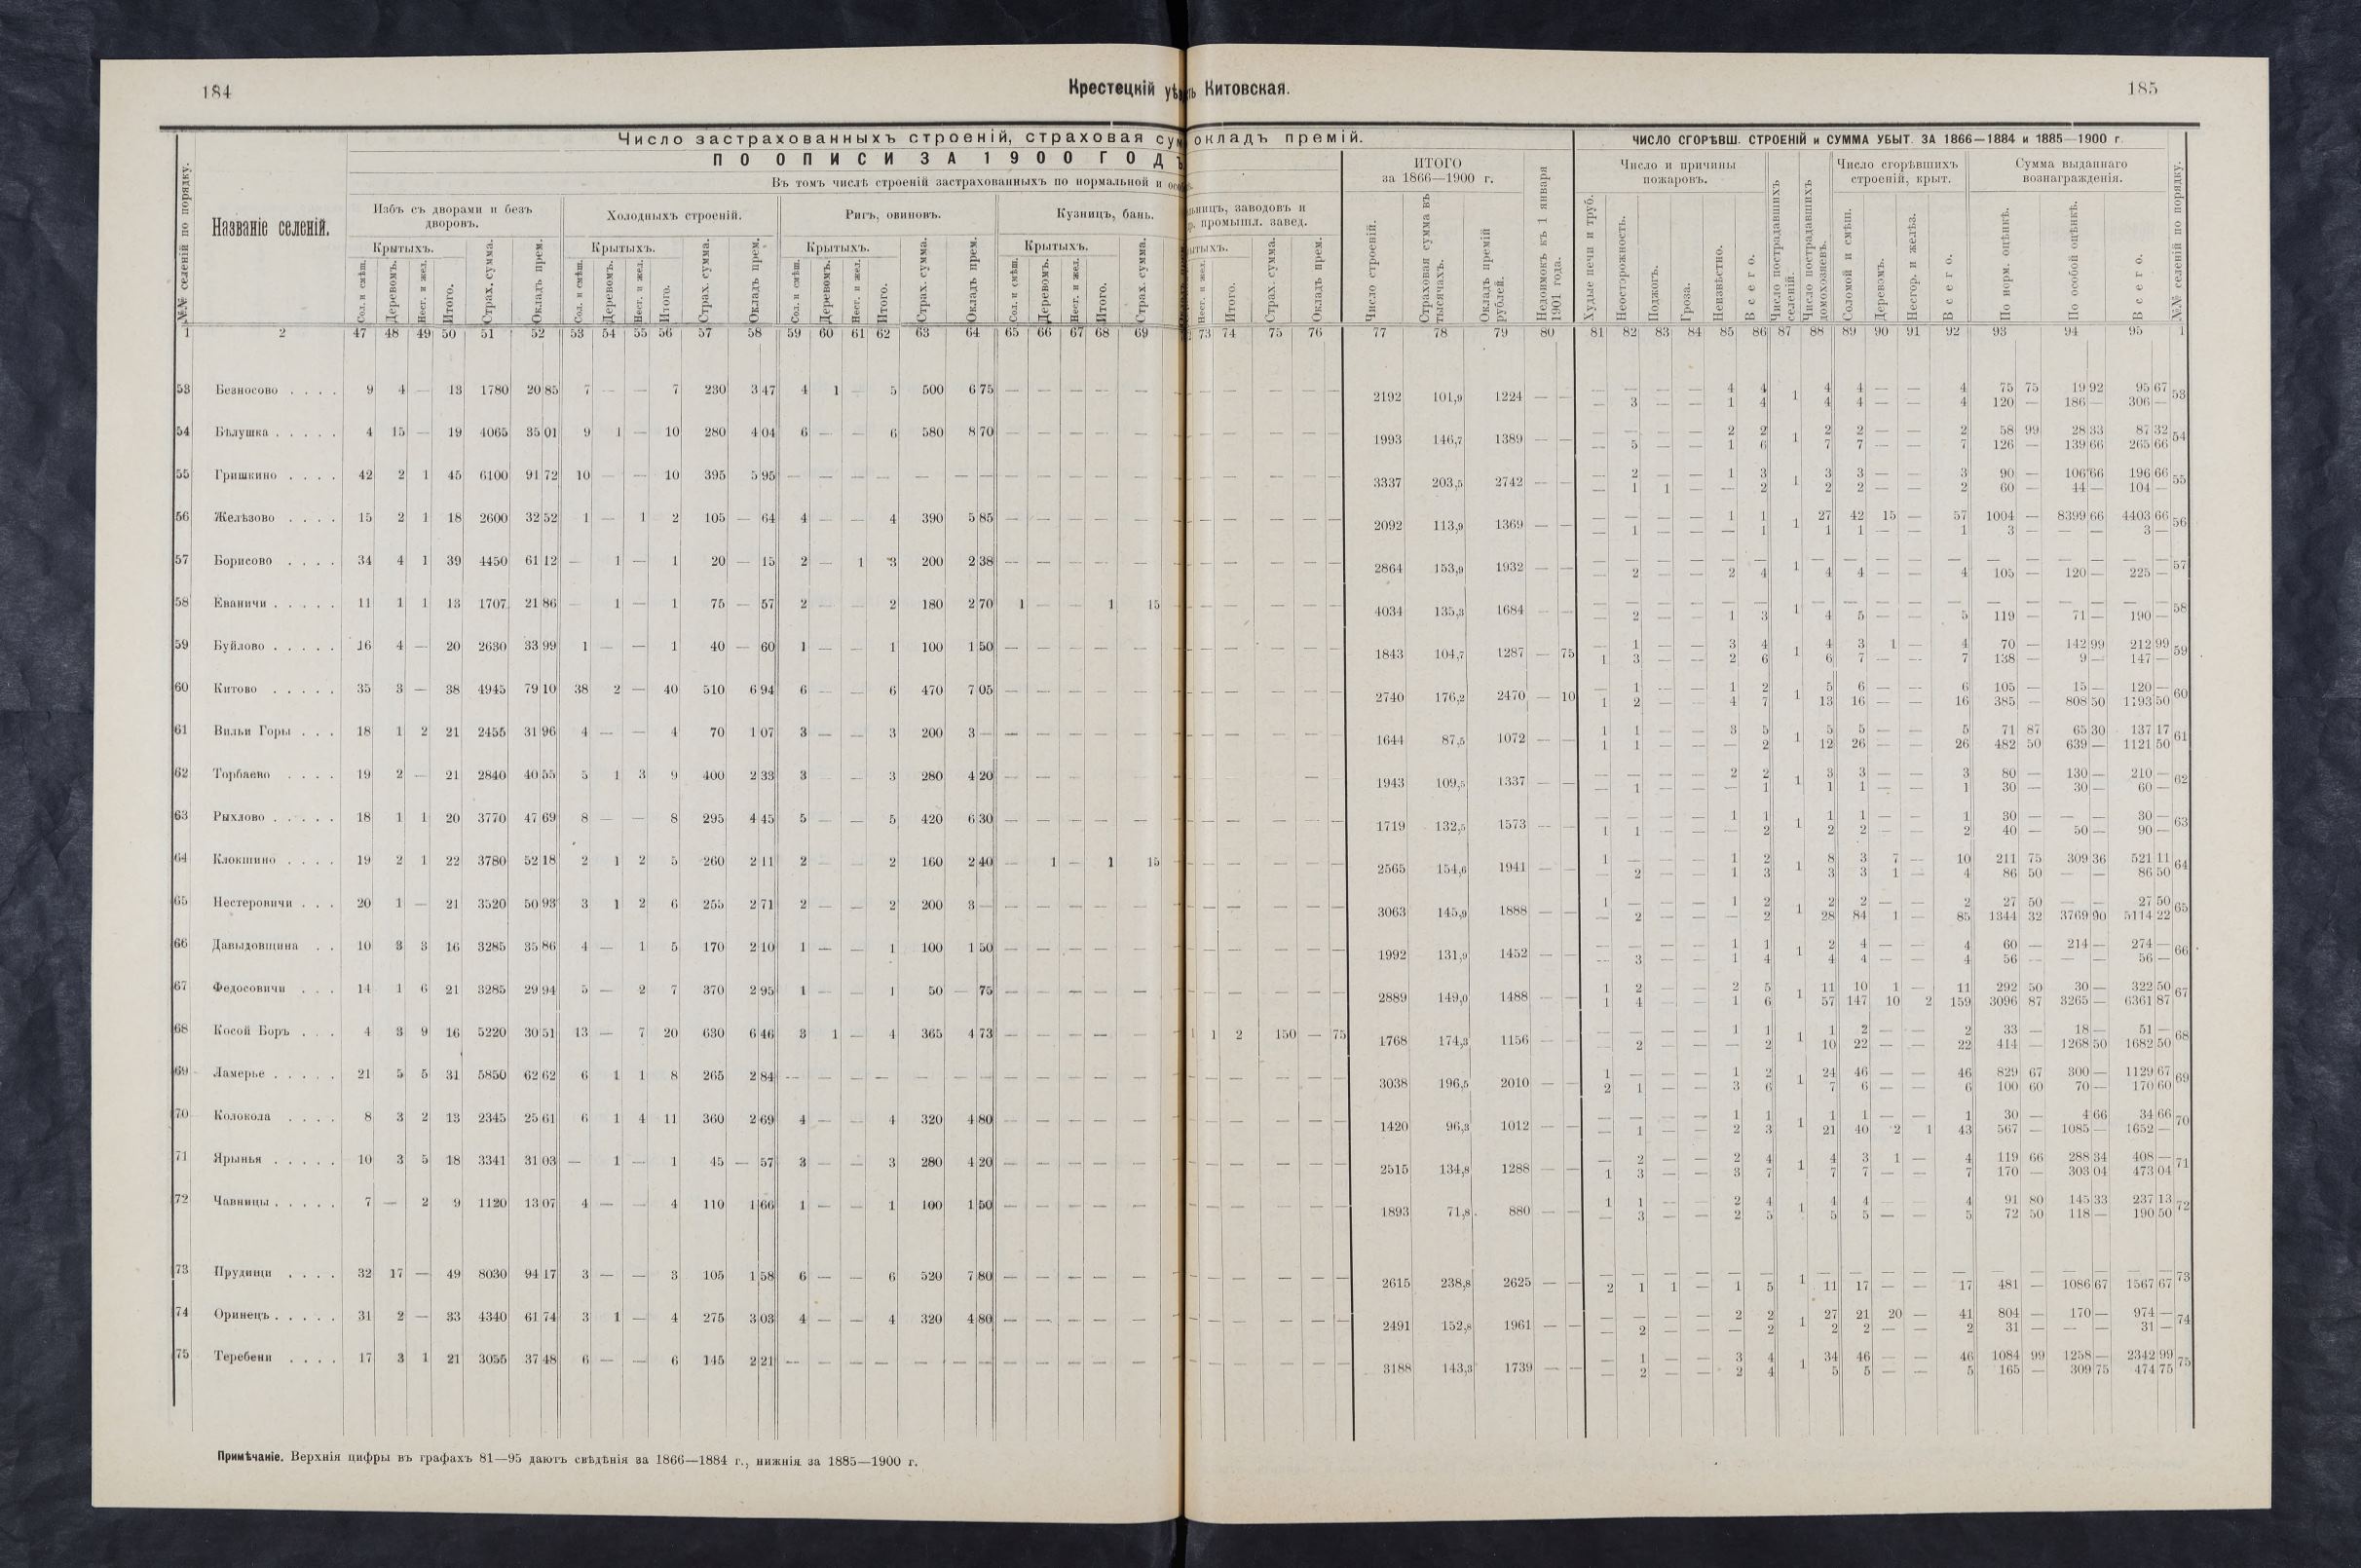 184
Крестецкій уѣ
ть Китовская.
185
Число застрахованныхъ строеній, страховая сум
окладъ премій.
ЧИСЛО СГОРѢВШ. СТРОЕНІЙ и СУММА УБЫТ. ЗА 1866—1884 и 1885—1900 г.
ПО ОПИСИ ЗА 1900 ГОДЪ
Въ томъ числѣ строеній застрахованныхъ по нормальной и осо
№№ селеній по порядку.
Названіе селеній.
Избъ съ дворами и безъ дворовъ.
Холодныхъ строеній.
Ригъ, овиновъ.
Кузницъ, бань.
ьницъ, заводовъ и
р. промышл. завед.
ИТОГО
за 1866—1900 г.
Недоимокъ къ 1 января 1901 года.
Число и причины пожаровъ.
Число пострадавшихъ селеній.
Число пострадавшихъ домохозяевъ.
Число сгорѣвшихъ строеній, крыт.
Сумма выданнаго вознагражденія.
№№ селеній по порядку.
Крытыхъ. Страх. сумма. Окладъ прем.
Крытыхъ. Страх. сумма. Окладъ прем.
Крытыхъ. Страх. сумма. Окладъ прем.
Крытыхъ. Страх. сумма.
ытыхъ. Страх. сумма. Окладъ прем.
Сол. и смѣш. Деревомъ. Несг. и жел. Итого.
Сол. и смѣш. Деревомъ. Несг. и жел. Итого.
Сол. и смѣш. Деревомъ. Несг. и жел. Итого.
Сол. и смѣш. Деревомъ. Несг. и жел. Итого.
Несг. и жел. Итого.
Число строеній. Страховая сумма въ тысячахъ. Окладъ премій рублей.
Худые печи и труб. Неосторожность. Поджогъ. Гроза. Неизвѣстно. Всего.
Соломой и смѣш. Деревомъ. Несгор. и желѣз. Всего.
По норм. оцѣнкѣ. По особой оцѣнкѣ. Всего.
1 2 47 48 49 50 51 52 53 54 55 56 57 58 59 60 61 62 63 64 65 66 67 68 69 73 74 75 76 77 78 79 80 81 82 83 84 85 86 87 88 89 90 91 92 93 94 95 1
53 Безносово . . . . 9 4 — 13 1780 20 85 7 — — 7 230 3 47 4 1 — 5 500 6 75 — — — — — — — — — 2192 101,9 1224 — — — — — — 4 4 1 4 4 — — 4 75 75 19 92 95 67 53
— 3 — — 1 4 4 4 — — 4 120 — 186 — 306 —
54 Бѣлушка . . . . . 4 15 — 19 4065 35 01 9 1 — 10 280 4 04 6 — — 6 580 8 70 — — — — — — — — — 1993 146,7 1389 — — — — — — 2 2 1 2 2 — — 2 58 99 28 33 87 32 54
— 5 — — 1 6 7 7 — — 7 126 — 139 66 265 66
55 Гришкино . . . . 42 2 1 45 6100 91 72 10 — — 10 395 5 95 — — — — — — — — — — — — — — — — 3337 203,5 2742 — — — 2 — — 1 3 1 3 3 — — 3 90 — 106 66 196 66 55
— 1 1 — — 2 2 2 — — 2 60 — 44 — 104 —
56 Желѣзово . . . . 15 2 1 18 2600 32 52 1 — 1 2 105 — 64 4 — — 4 390 5 85 — — — — — — — — — 2092 113,9 1369 — — — — — — 1 1 1 27 42 15 — 57 1004 — 8399 66 4403 66 56
— 1 — — — 1 1 1 — — 1 3 — — — 3 —
57 Борисово . . . . 34 4 1 39 4450 61 12 — 1 — 1 20 — 15 2 — 1 3 200 2 38 — — — — — — — — — 2864 153,9 1932 — — — — — — — — 1 — — — — — — — — — — — 57
— 2 — — 2 4 4 4 — — 4 105 — 120 — 225 —
58 Еваничи . . . . . 11 1 1 13 1707 21 86 — 1 — 1 75 — 57 2 — — 2 180 2 70 1 — — 1 15 — — — — 4034 135,3 1684 — — — — — — — — 1 — — — — — — — — — — — 58
— 2 — — 1 3 4 5 — — 5 119 — 71 — 190 —
59 Буйлово . . . . . 16 4 — 20 2630 33 99 1 — — 1 40 — 60 1 — — 1 100 1 50 — — — — — — — — — 1843 104,7 1287 — 75 — 1 — — 3 4 1 4 3 1 — 4 70 — 142 99 212 99 59
1 3 — — 2 6 6 7 — — 7 138 — 9 — 147 —
60 Китово . . . . . 35 3 — 38 4945 79 10 38 2 — 40 510 6 94 6 — — 6 470 7 05 — — — — — — — — — 2740 176,2 2470 — 10 — 1 — — 1 2 1 5 6 — — 6 105 — 15 — 120 — 60
1 2 — — 4 7 13 16 — — 16 385 — 808 50 1193 50
61 Вильи Горы . . . 18 1 2 21 2455 31 96 4 — — 4 70 1 07 3 — — 3 200 3 — — — — — — — — — — 1644 87,5 1072 — — 1 1 — — 3 5 1 5 5 — — 5 71 87 65 30 137 17 61
1 1 — — — 2 12 26 — — 26 482 50 639 — 1121 50
62 Торбаево . . . . 19 2 — 21 2840 40 55 5 1 3 9 400 2 33 3 — — 3 280 4 20 — — — — — — 1943 109,5 1337 — — — — — — 2 2 1 3 3 — — 3 80 — 130 — 210 — 62
— 1 — — — 1 1 1 — — 1 30 — 30 — 60 —
63 Рыхлово . . . . . 18 1 1 20 3770 47 69 8 — — 8 295 4 45 5 — — 5 420 6 30 — — — — — — — — — 1719 132,5 1573 — — — — — — 1 1 1 1 1 — — 1 30 — — — 30 — 63
1 1 — — — 2 2 2 — — 2 40 — 50 — 90 —
64 Клокшино . . . . 19 2 1 22 3780 52 18 2 1 2 5 260 2 11 2 — — 2 160 2 40 — 1 — 1 15 — — — — 2565 154,6 1941 — — 1 — — — 1 2 1 8 3 7 — 10 211 75 309 36 521 11 64
— 2 — — 1 3 3 3 1 — 4 86 50 — — 86 50
65 Нестеровичи . . . 20 1 — 21 3520 50 93 3 1 2 6 255 2 71 2 — — 2 200 3 — — — — — — — — — — 3063 145,9 1888 — — 1 — — — 1 2 1 2 2 — — 2 27 50 — — 27 50 65
— 2 — — — 2 28 84 1 — 85 1344 32 3769 90 5114 22
66 Давыдовщина . . 10 3 3 16 3285 35 86 4 — 1 5 170 2 10 1 — — 1 100 1 50 — — — — — — — — — 1992 131,9 1452 — — — — — — 1 1 1 2 4 — — 4 60 — 214 — 274 — 66
— 3 — — 1 4 4 4 — — 4 56 — — — 56 —
67 Федосовичи . . . 14 1 6 21 3285 29 94 5 — 2 7 370 2 95 1 — — 1 50 — 75 — — — — — — — — — 2889 149,0 1488 — — 1 2 — — 2 5 1 11 10 1 — 11 292 50 30 — 322 50 67
1 4 — — 1 6 57 147 10 2 159 3096 87 3265 — 6361 87
68 Косой Боръ . . . 4 3 9 16 5220 30 51 13 — 7 20 630 6 46 3 1 — 4 365 4 73 — — — — — 1 2 150 — 75 1768 174,3 1156 — — — — — — 1 1 1 1 2 — — 2 33 — 18 — 51 — 68
— 2 — — — 2 10 22 — — 22 414 — 1268 50 1682 50
69 Ламерье . . . . . 21 5 5 31 5850 62 62 6 1 1 8 265 2 84 — — — — — — — — — — — — — — — — 3038 196,5 2010 — — 1 — — — 1 2 1 24 46 — — 46 829 67 300 — 1129 67 69
2 1 — — 3 6 7 6 — — 6 100 60 70 — 170 60
70 Колокола . . . . 8 3 2 13 2345 25 61 6 1 4 11 360 2 69 4 — — 4 320 4 80 — — — — — — — — — 1420 96,3 1012 — — — — — — 1 1 1 1 1 — — 1 30 — 4 66 34 66 70
— 1 — — 2 3 21 40 2 1 43 567 — 1085 — 1652 —
71 Ярынья . . . . . 10 3 5 18 3341 31 03 — 1 — 1 45 — 57 3 — — 3 280 4 20 — — — — — — — — — 2515 134,8 1288 — — — 2 — — 2 4 1 4 3 1 — 4 119 66 288 34 408 — 71
1 3 — — 3 7 7 7 — — 7 170 — 303 04 473 04
72 Чавницы . . . . . 7 — 2 9 1120 13 07 4 — — 4 110 1 66 1 — — 1 100 1 50 — — — — — — — — — 1893 71,8 880 — — 1 1 — — 2 4 1 4 4 — — 4 91 80 145 33 237 13 72
— 3 — — 2 5 5 5 — — 5 72 50 118 — 190 50
73 Прудищи . . . . 32 17 — 49 8030 94 17 3 — — 3 105 1 58 6 — — 6 520 7 80 — — — — — — — — — 2615 238,8 2625 — — — — — — — — 1 — — — — — — — — — — — 73
2 1 1 — 1 5 11 17 — — 17 481 — 1086 67 1567 67
74 Оринецъ . . . . . 31 2 — 33 4340 61 74 3 1 — 4 275 3 03 4 — — 4 320 4 80 — — — — — — — — — 2491 152,8 1961 — — — — — — 2 2 1 27 21 20 — 41 804 — 170 — 974 — 74
— 2 — — — 2 2 2 — — 2 31 — — — 31 —
75 Теребени . . . . 17 3 1 21 3055 37 48 6 — — 6 145 2 21 — — — — — — — — — — — — — — — — 3188 143,3 1739 — — — 1 — — 3 4 1 34 46 — — 46 1084 99 1258 — 2342 99 75
— 2 — — 2 4 5 5 — — 5 165 — 309 75 474 75
Примѣчаніе. Верхнія цифры въ графахъ 81—95 даютъ свѣдѣнія за 1866—1884 г., нижнія за 1885—1900 г.